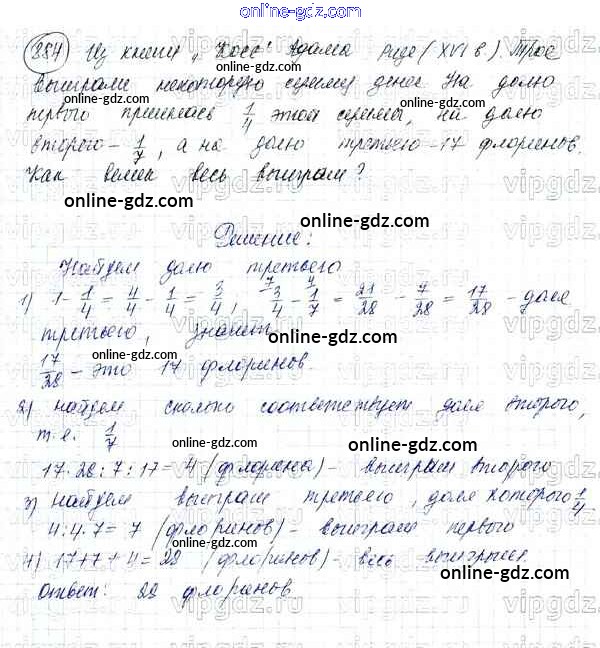 online-gdz.com
884) Из книги „Косс" Адама Ризе (XVI в). Трое
выиграли некоторую сумму денег. На долю
первого пришлась 1/4 этой суммы, на долю
второго - 1/7, а на долю третьего - 17 флоринов.
Как велик весь выигрыш?
online-gdz.com
online-gdz.com
Решение:
online-gdz.com
Найдем долю третьего
1) 1 - 1/4 = 4/4 - 1/4 = 3/4, 3/4 - 1/7 = 21/28 - 7/28 = 17/28 - доля
третьего, значит
online-gdz.com
17/28 - это 17 флоринов.
online-gdz.com
2) найдем сколько соответствует доле второго,
т.е. 1/7
online-gdz.com
17·28:7:17=4 (флорина) - выиграл второго
3) найдем выиграш третьего, доля которого 1/4
4:4·7=7 (флоринов) - выиграш первого
online-gdz.com
4) 17+7+4=28 (флоринов) - весь выигрыш.
online-gdz.com
Ответ: 28 флоринов.
online-gdz.com